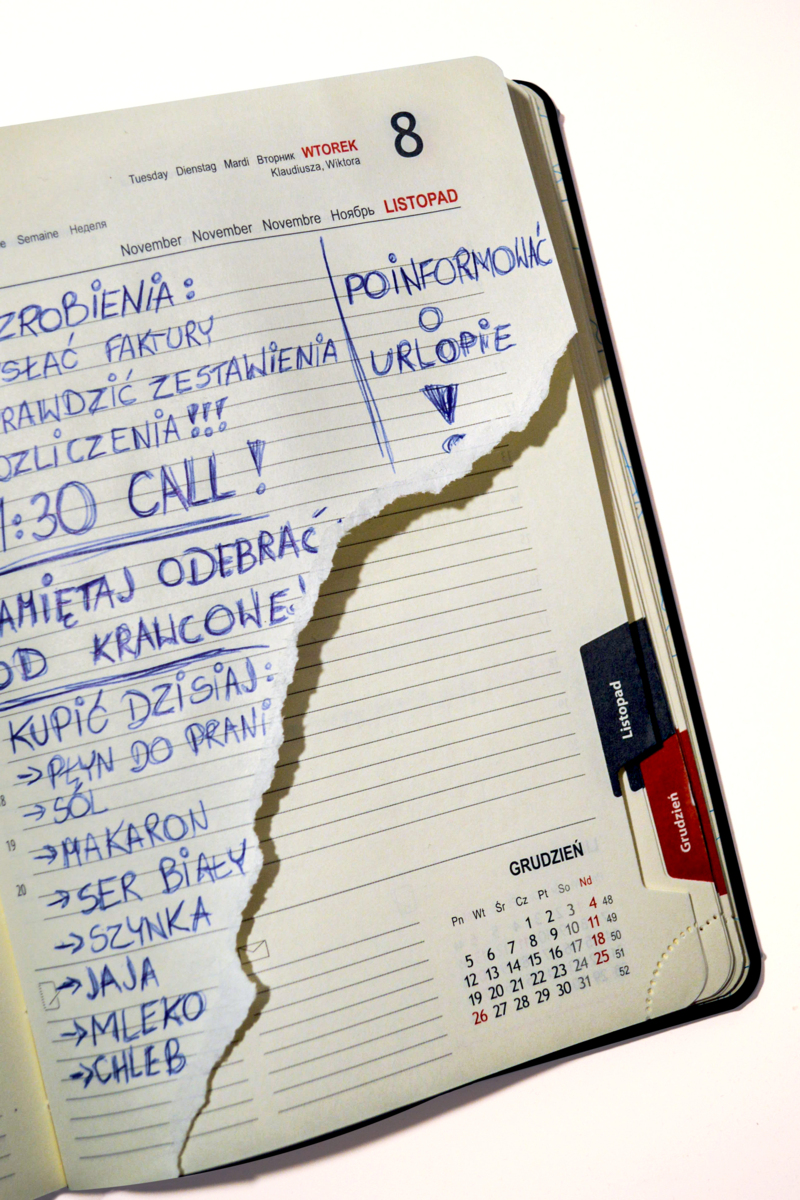 8
Tuesday Dienstag Mardi Вторник WTOREK
Klaudiusza, Wiktora
Semaine Неделя
November November Novembre Ноябрь LISTOPAD
ZROBIENIA:
FAKTURY
ZESTAWIENIA
:30 CALL!
ODEBRAĆ
OD KRAWCOWEJ!
POINFORMOWAĆ
O
URLOPIE
KUPIĆ DZISIAJ:
→ PŁYN DO PRANI
→ SÓL
→ MAKARON
→ SER BIAŁY
→ SZYNKA
→ JAJA
→ MLEKO
→ CHLEB
8
19
20
Listopad
Grudzień
GRUDZIEŃ
Pn Wt Śr Cz Pt So Nd
1 2 3 4 48
5 6 7 8 9 10 11 49
12 13 14 15 16 17 18 50
19 20 21 22 23 24 25 51
26 27 28 29 30 31 52